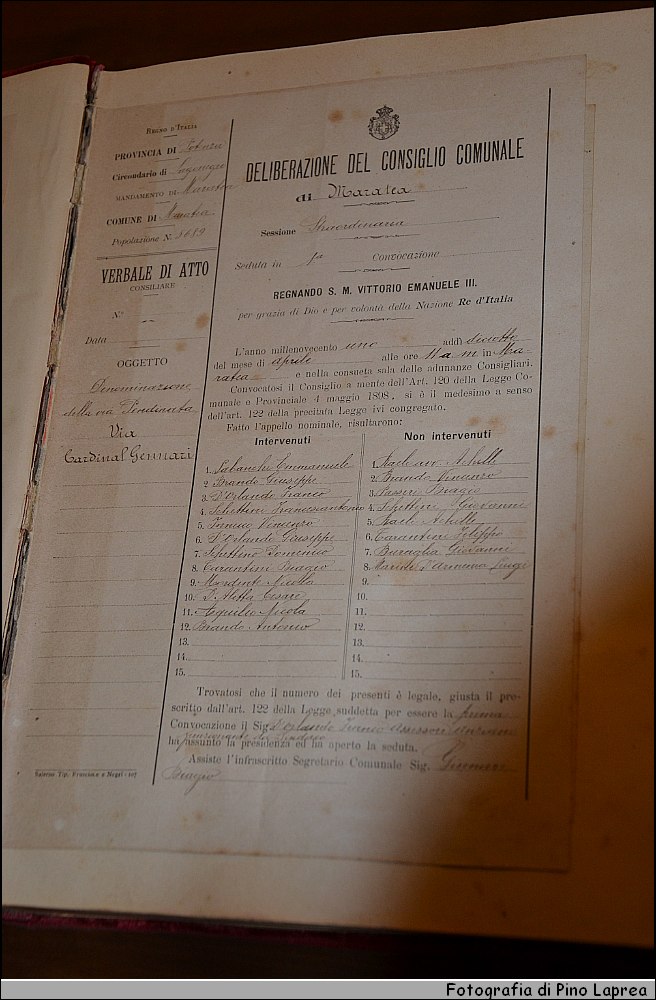 REGNO D'ITALIA
PROVINCIA DI Potenza
Circondario di Lagonegro
MANDAMENTO DI Maratea
COMUNE DI Maratea
Popolazione N.
VERBALE DI ATTO
CONSILIARE
N.º
Data
OGGETTO
Denominazione
della via Pendinata
Via
Cardinal Gennari
Salerno Tip. Fruscione e Negri - 107
DELIBERAZIONE DEL CONSIGLIO COMUNALE
di Maratea
Sessione Straordinaria
Seduta in 1a Convocazione
REGNANDO S. M. VITTORIO EMANUELE III.
per grazia di Dio e per volontà della Nazione Re d'Italia
L'anno millenovecento uno addì diciotto
del mese di Aprile alle ore 11 a m in Ma-
ratea e nella consueta sala delle adunanze Consigliari.
Convocatosi il Consiglio a mente dell'Art. 120 della Legge Co-
munale e Provinciale 4 maggio 1898, si è il medesimo a senso
dell'art. 122 della precitata Legge ivi congregato.
Fatto l'appello nominale, risultarono:
Intervenuti
1. Labanchi Emmanuele
2. Brando Giuseppe
3. D'Orlando Franco
4. Schettini Francescantonio
5. Iannini Vincenzo
6. D'Orlando Giuseppe
7. Schettino Domenico
8. Tarantini Biagio
9. Mordente Nicola
10. D'Alitti Cesare
11. Nicola
12. Brando Antonio
13.
14.
15.
Non intervenuti
1. Achille
2. Brando Vincenzo
3. Biagio
4. Schettini Giovanni
5. Achille
6. Tarantini Filippo
7. Buraglia Giovanni
8. D'Armena Luigi
9.
10.
11.
12.
13.
14.
15.
Trovatosi che il numero dei presenti è legale, giusta il pre-
scritto dall'art. 122 della Legge suddetta per essere la prima
Convocazione il Sig. D'Orlando Franco Assessore Anziano
funzionante da Sindaco
ha assunto la presidenza ed ha aperto la seduta.
Assiste l'infrascritto Segretario Comunale Sig.
Biagio
Fotografia di Pino Laprea